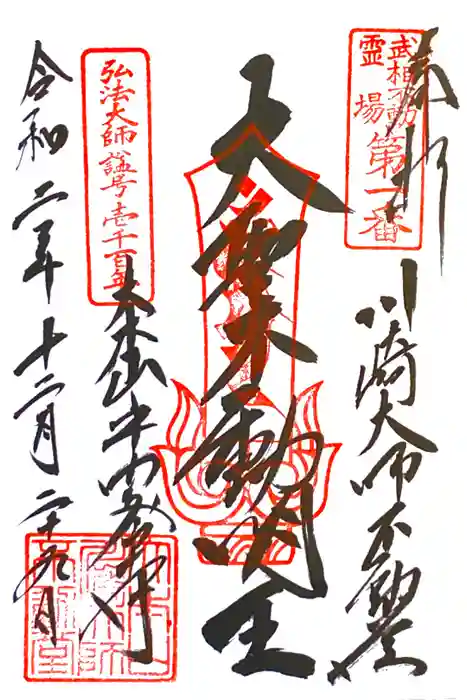 奉拝
武相不動
霊場第一番
川崎大師不動堂
大聖不動明王
弘法大師諡号壱千百年
大本山平間寺
令和二年十二月二十九日